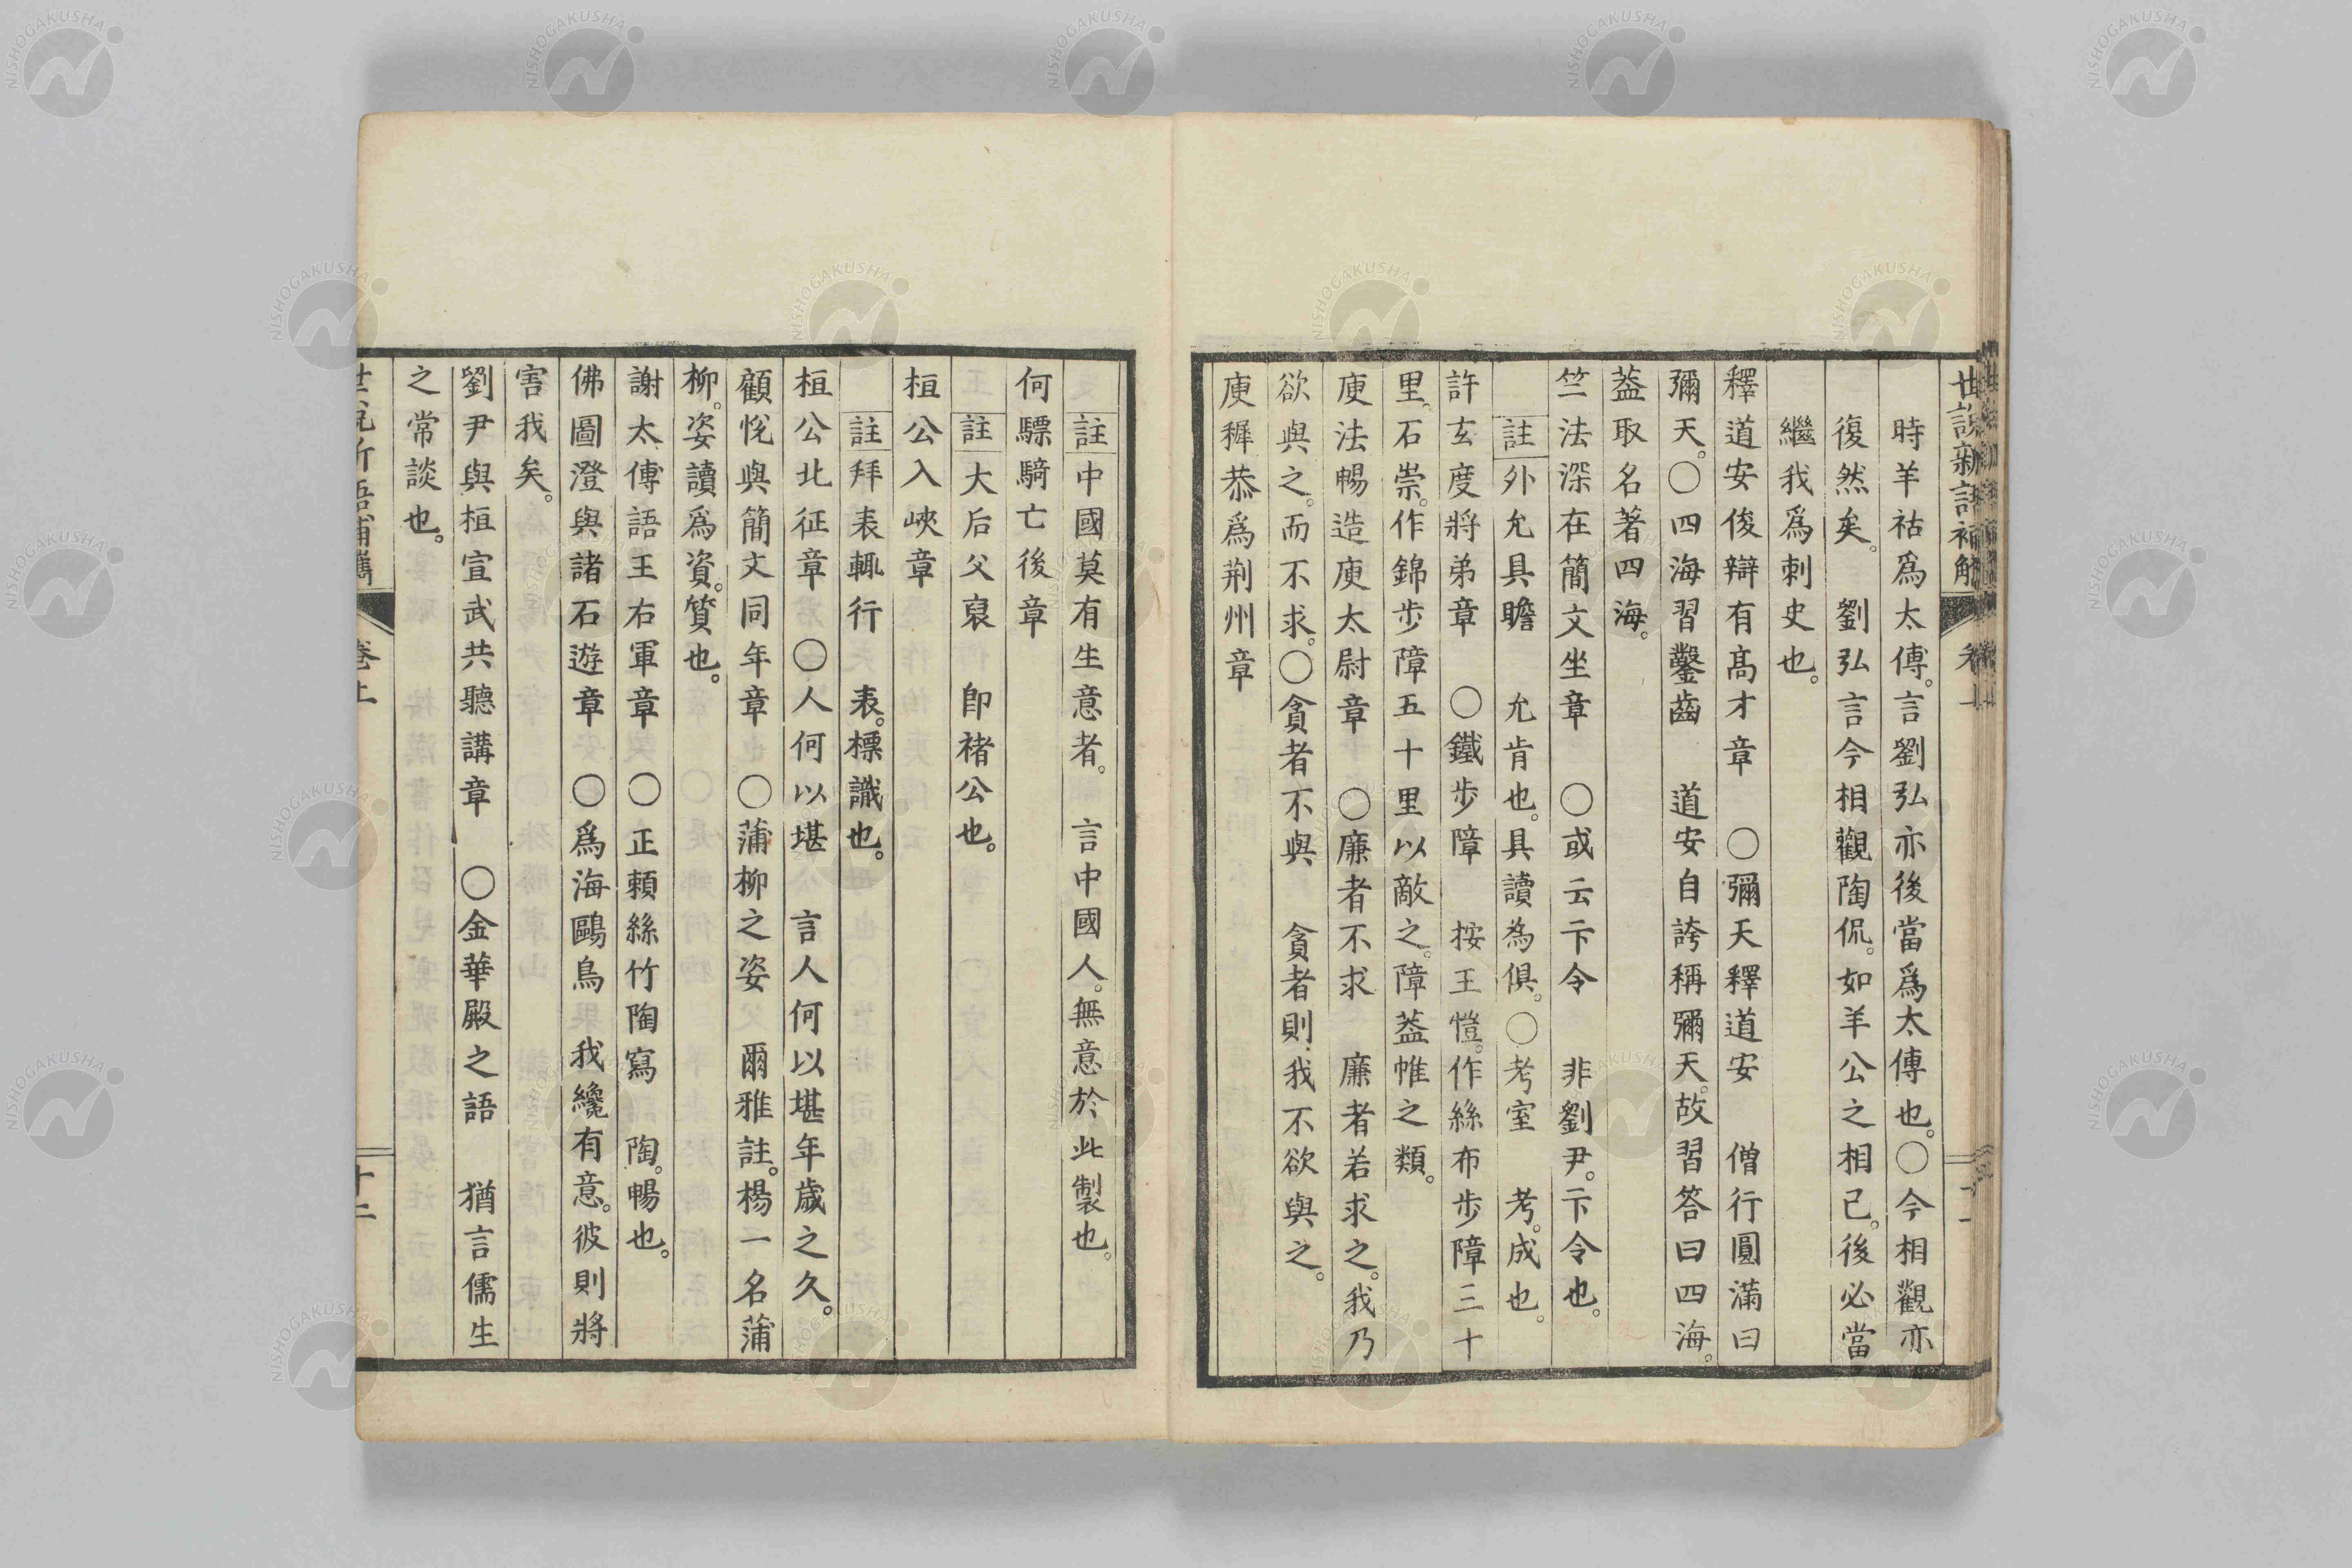 時羊祜爲太傅。言劉弘亦後當爲太傅也。〇今相觀亦
復然矣。 劉弘言今相觀陶侃。如羊公之相已。後必當
繼我爲刺史也。
釋道安俊辯有髙才章 〇彌天釋道安 僧行圓滿曰
彌天。〇四海習鑿齒 道安自誇稱彌天。故習答曰四海。
葢取名著四海。
竺法深在簡文坐章 〇或云卞令 非劉尹。卞令也。
註外允具瞻 允肯也。具讀為俱。〇考室 考。成也。
許玄度將弟章 〇鐵步障 按王愷。作絲布步障三十
里。石崇。作錦步障五十里以敵之。障葢帷之類。
庾法暢造庾太尉章 〇廉者不求 廉者若求之。我乃
欲與之。而不求。〇貪者不與 貪者則我不欲與之。
庾穉恭爲荆州章
註中國莫有生意者。 言中國人。無意於此製也。
何驃騎亡後章
註大后父裒 卽褚公也。
桓公入峽章
註拜表輒行 表。標識也。
桓公北征章 〇人何以堪 言人何以堪年歲之久。
顧悅與簡文同年章 〇蒲柳之姿 爾雅註。楊一名蒲
柳。姿讀爲資。質也。
謝太傅語王右軍章 〇正賴絲竹陶寫 陶。暢也。
佛圖澄與諸石遊章 〇爲海鷗鳥 我纔有意。彼則將
害我矣。
劉尹與桓宣武共聽講章 〇金華殿之語 猶言儒生
之常談也。
NISHOGAKUSHA